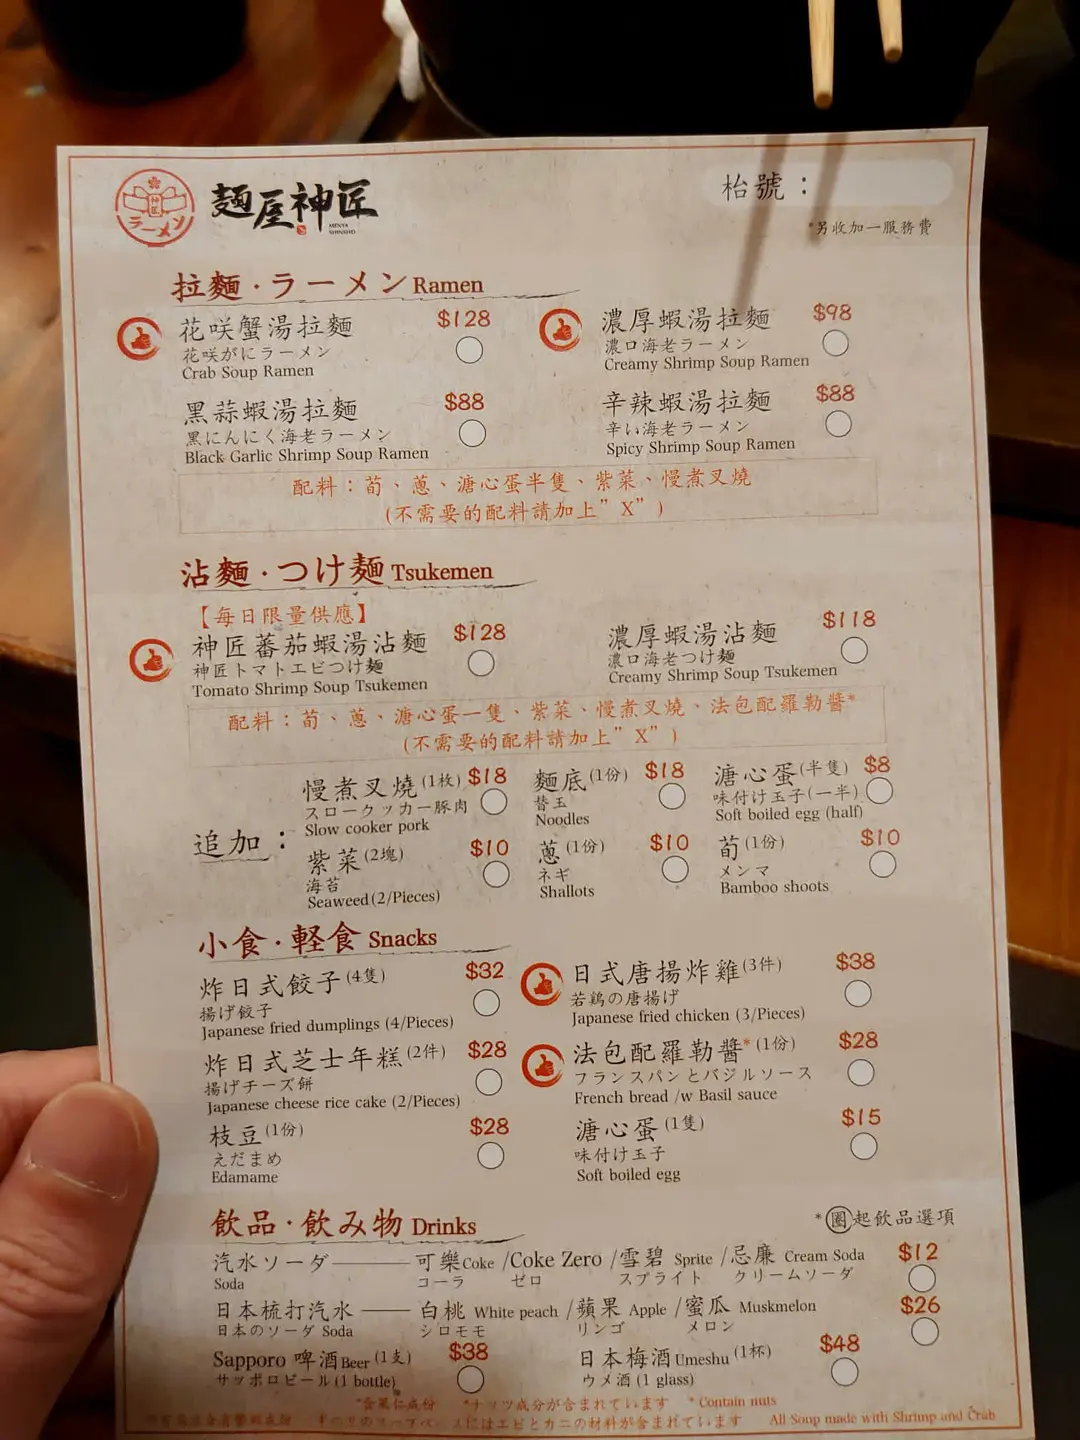 神匠
ラーメン
麵屋神匠
MENYA
SHINSHO
枱號：
*另收加一服務費
拉麵·ラーメン Ramen
花咲蟹湯拉麵 $128
花咲がにラーメン
Crab Soup Ramen
濃厚蝦湯拉麵 $98
濃口海老ラーメン
Creamy Shrimp Soup Ramen
黑蒜蝦湯拉麵 $88
黒にんにく海老ラーメン
Black Garlic Shrimp Soup Ramen
辛辣蝦湯拉麵 $88
辛い海老ラーメン
Spicy Shrimp Soup Ramen
配料：荀、蔥、溏心蛋半隻、紫菜、慢煮叉燒
(不需要的配料請加上”X”)
沾麵·つけ麵 Tsukemen
【每日限量供應】
神匠蕃茄蝦湯沾麵 $128
神匠トマトエビつけ麵
Tomato Shrimp Soup Tsukemen
濃厚蝦湯沾麵 $118
濃口海老つけ麵
Creamy Shrimp Soup Tsukemen
配料：荀、蔥、溏心蛋一隻、紫菜、慢煮叉燒、法包配羅勒醬*
(不需要的配料請加上”X”)
追加：
慢煮叉燒(1枚) $18
スロークッカー豚肉
Slow cooker pork
麵底(1份) $18
替玉
Noodles
溏心蛋(半隻) $8
味付け玉子(一半)
Soft boiled egg (half)
紫菜(2塊) $10
海苔
Seaweed(2/Pieces)
蔥(1份) $10
ネギ
Shallots
荀(1份) $10
メンマ
Bamboo shoots
小食·軽食 Snacks
炸日式餃子(4隻) $32
揚げ餃子
Japanese fried dumplings (4/Pieces)
日式唐揚炸雞(3件) $38
若鶏の唐揚げ
Japanese fried chicken (3/Pieces)
炸日式芝士年糕(2件) $28
揚げチーズ餅
Japanese cheese rice cake (2/Pieces)
法包配羅勒醬*(1份) $28
フランスパンとバジルソース
French bread /w Basil sauce
枝豆(1份) $28
えだまめ
Edamame
溏心蛋(1隻) $15
味付け玉子
Soft boiled egg
飲品·飲み物 Drinks
*圈起飲品選項
汽水ソーダ——可樂Coke /Coke Zero /雪碧 Sprite /忌廉 Cream Soda $12
Soda コーラ ゼロ スプライト クリームソーダ
日本梳打汽水——白桃 White peach /蘋果 Apple /蜜瓜 Muskmelon $26
日本のソーダ Soda シロモモ リンゴ メロン
Sapporo 啤酒Beer (1支) $38
サッポロビール(1 bottle)
日本梅酒Umeshu(1杯) $48
ウメ酒(1 glass)
*含果仁成份 *ナッツ成分が含まれています * Contain nuts
スープベースにはエビとカニの材料が含まれています All Soup made with Shrimp and Crab